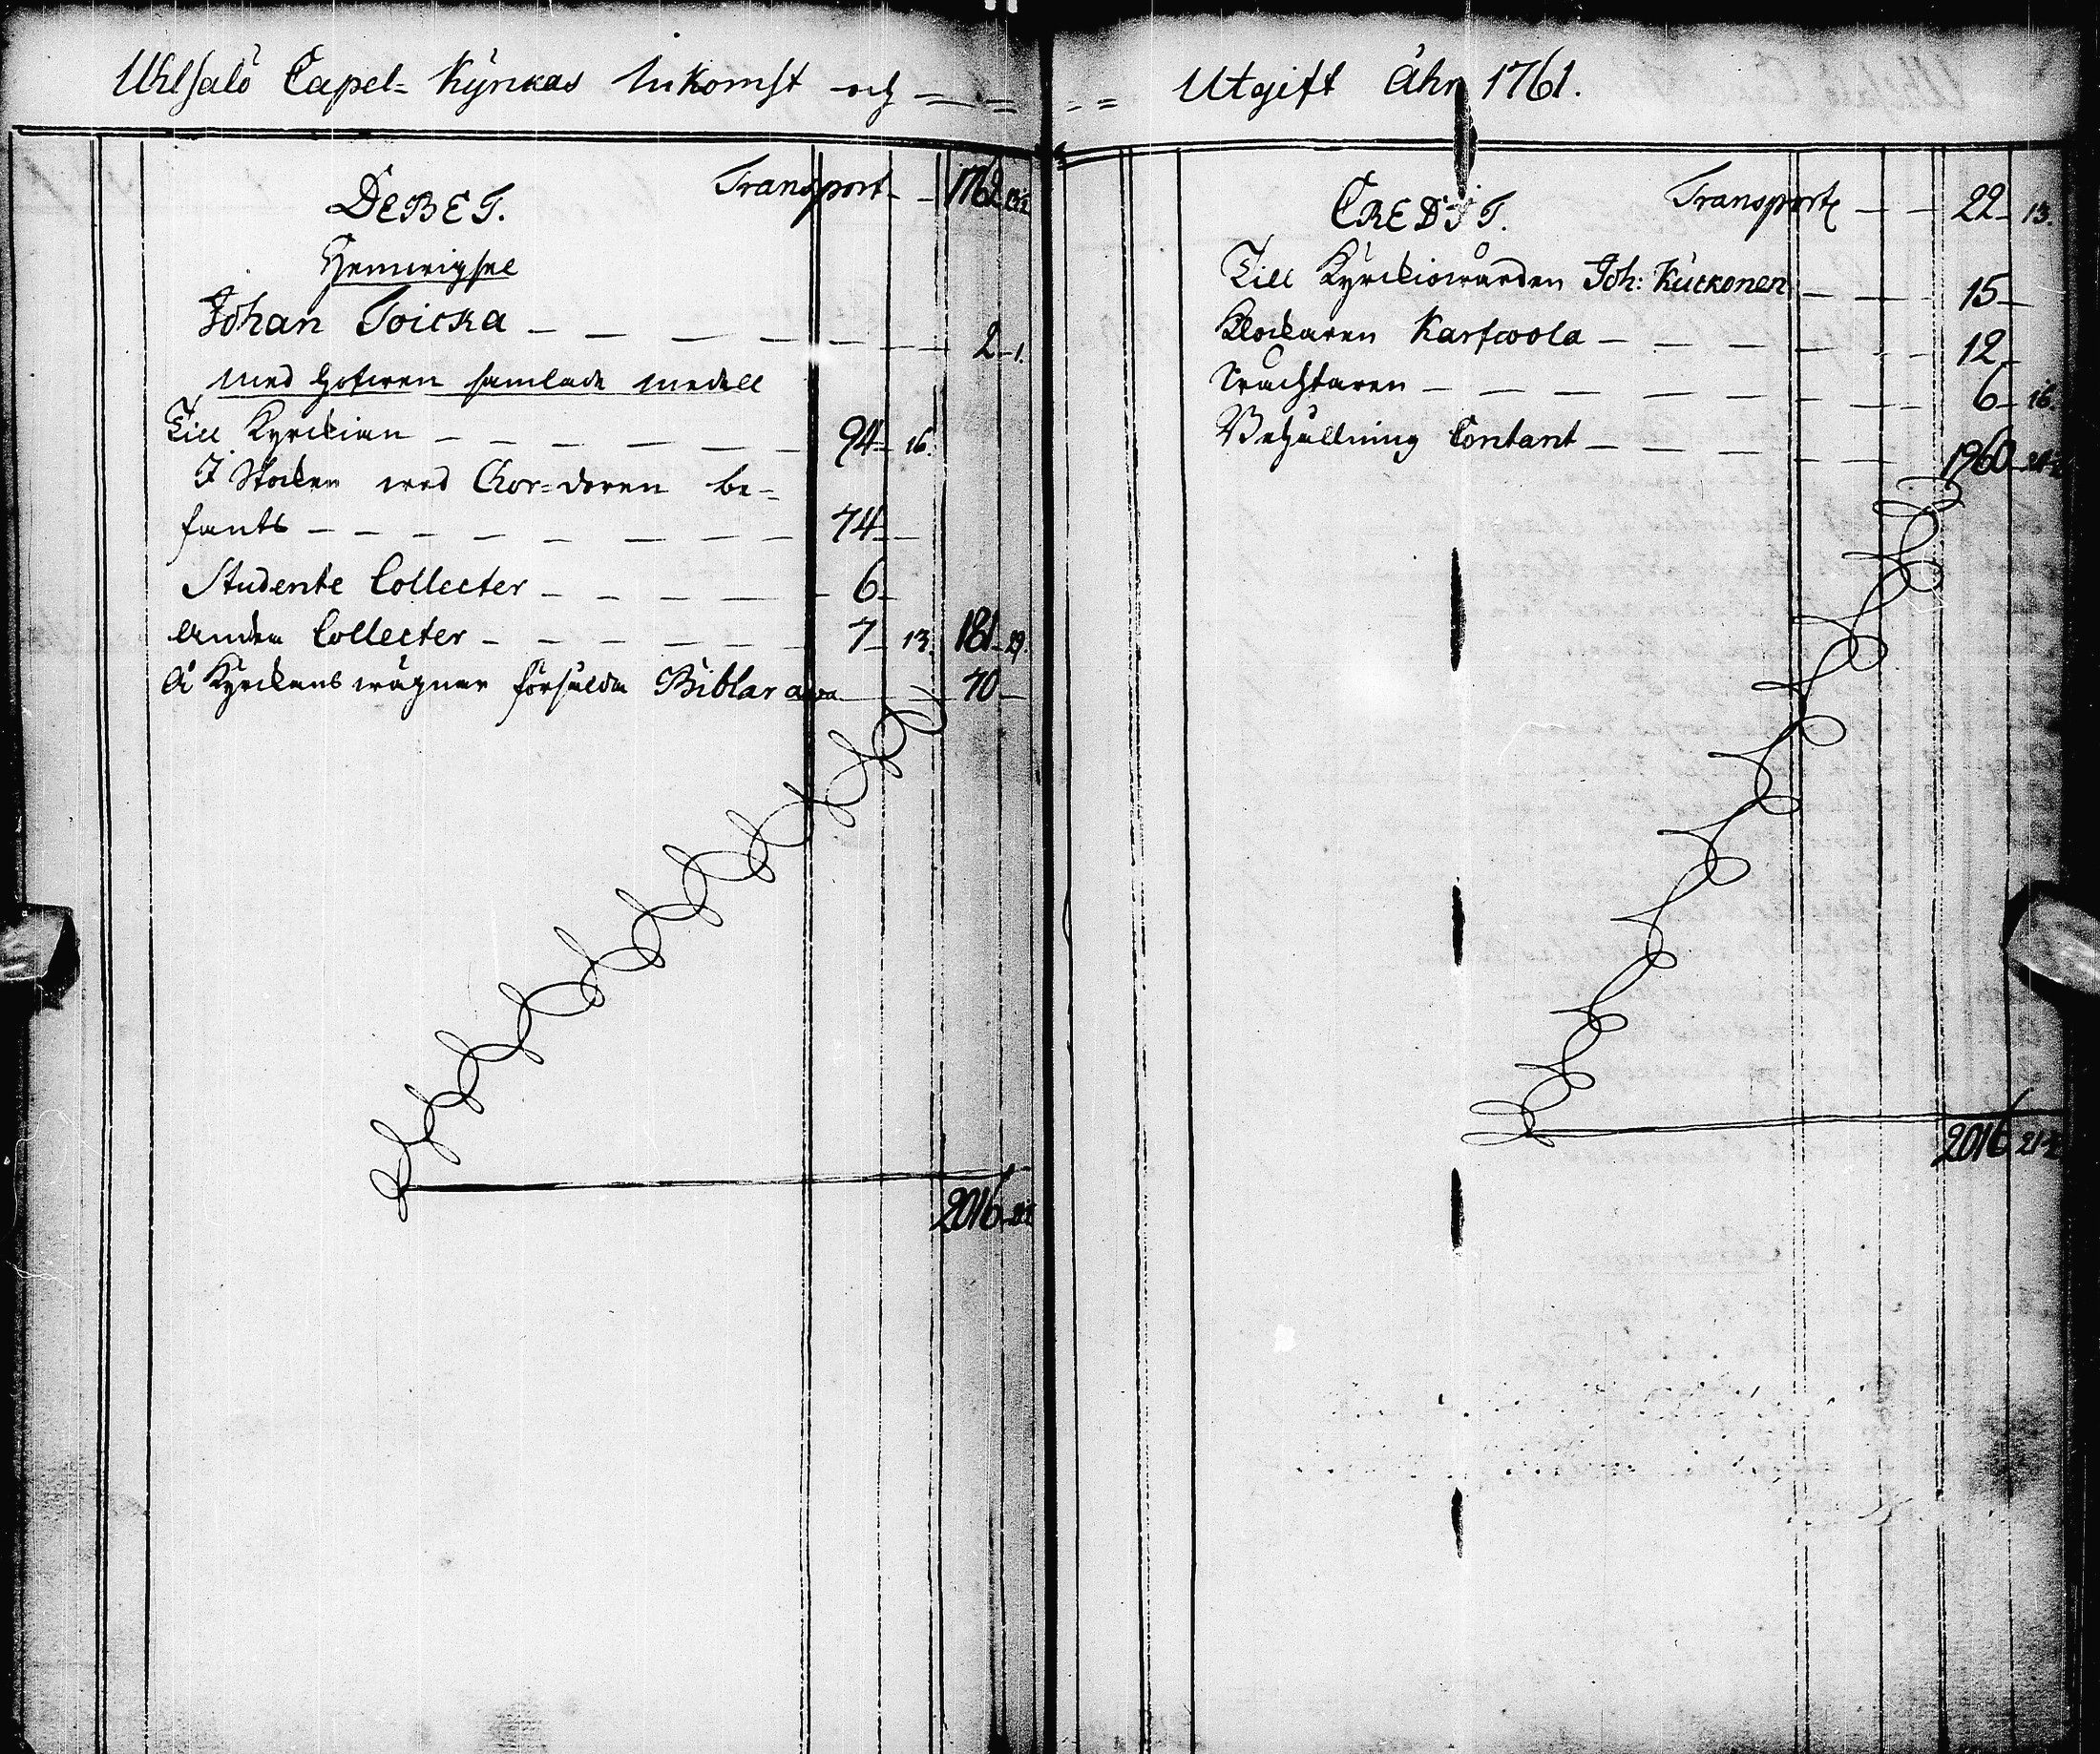 Uhlsalö Capel= Kyrkas Inkomst och — = = = Utgift Åhr 1761.
DEBET. Transport — 1762
Johan Toicka — — — — — — 2–1.
med Hofwen samlade medell
Till Kyrckian — — — — — — 94– 16.
I Stocken wed Chor=doren be=
fants — — — — — — — — — 74–
Studente Collecter — — — — — 6–
Andra Collecter — — — — — — 7– 13. 181–29.
Å Kyrckans wägnar försålda Biblar — 70–
2016
CREDIT. Transport — — 22– 13.
Till Kyrckiowärden Joh: Kuckonen — — — 15–
Klockaren Karfwola — — — — — — 12–
— — — — — — — — 6– 16.
Behållning Contant — — — — — — 1960
2016